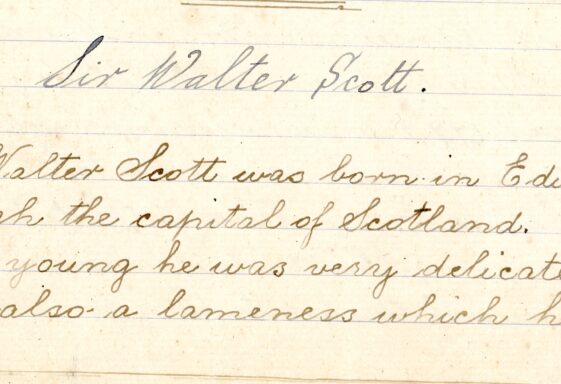 Sir Walter Scott.
Walter Scott was born in Edu
gh the capital of Scotland.
young he was very delicate
also a lameness which h